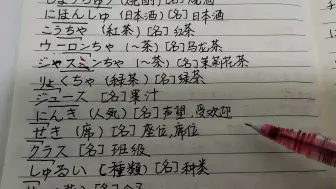 しょうちゅう (焼酎) [名] 烧酒
にほんしゅ (日本酒) [名] 日本酒
こうちゃ (紅茶) [名] 红茶
ウーロンちゃ (〜茶) [名] 乌龙茶
ジャスミンちゃ (〜茶) [名] 茉莉花茶
りょくちゃ (緑茶) [名] 绿茶
ジュース [名] 果汁
にんき (人気) [名] 声望,受欢迎
せき (席) [名] 座位,席位
クラス [名] 班级
しゅるい (種類) [名] 种类